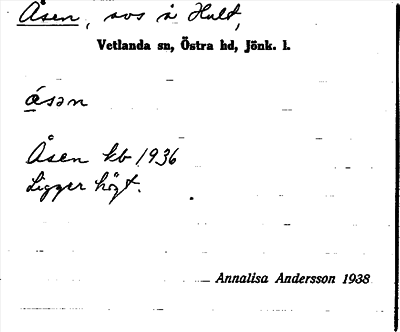 Åsen, sos å Hult,
Vetlanda sn, Östra hd, Jönk. l.
ásən
Åsen kb 1936
Ligger högt.
Annalisa Andersson 1938